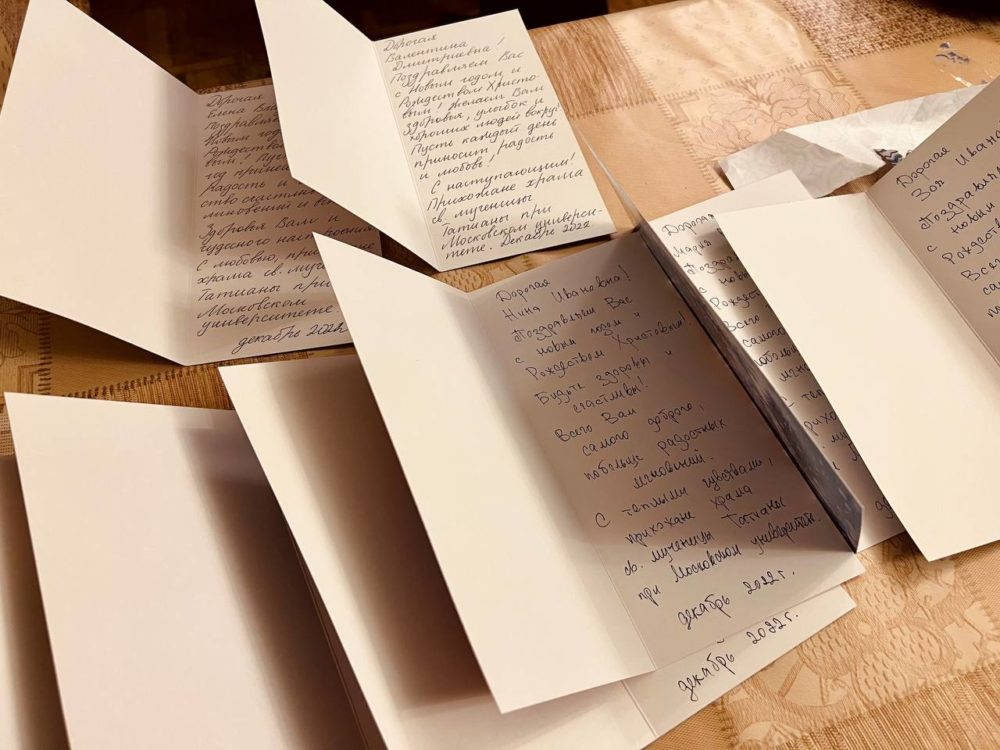 Дорогая
Елена
Поздравля
Новым год
Рождеств
вым! Пус
год принес
радость и
ство счастли
мгновений и
Здоровья Вам и
чудесного настроения
С любовью, при
храма св. му
Татианы при
Московском
университете.
декабрь 2022
Дорогая
Валентина
Дмитриевна!
Поздравляем Вас
с Новым годом и
Рождеством Христо-
вым! Желаем Вам
здоровья, улыбок и
хороших людей вокруг!
Пусть каждый день
приносит радость
и любовь!
С наступающим!
Прихожане храма
св. мученицы
Татианы при
Московском универси-
тете. Декабрь 2022
Дорогая
Нина Ивановна!
Поздравляем Вас
с новым годом и
Рождеством Христовым!
Будьте здоровы и
счастливы!
Всего Вам
самого доброго,
побольше радостных
мгновений.
С теплыми чувствами,
прихожане храма
св. мученицы Татианы
при Московском университете.
декабрь 2022 г.
декабрь 2022 г.
Дорога
Мария
Поздра
с новы
Рождес
Всего
самого
поболь
мгн
С теп
прихо
Дорогая
Зоя Ивано
Поздравля
с новым
Рождест
Всег
са